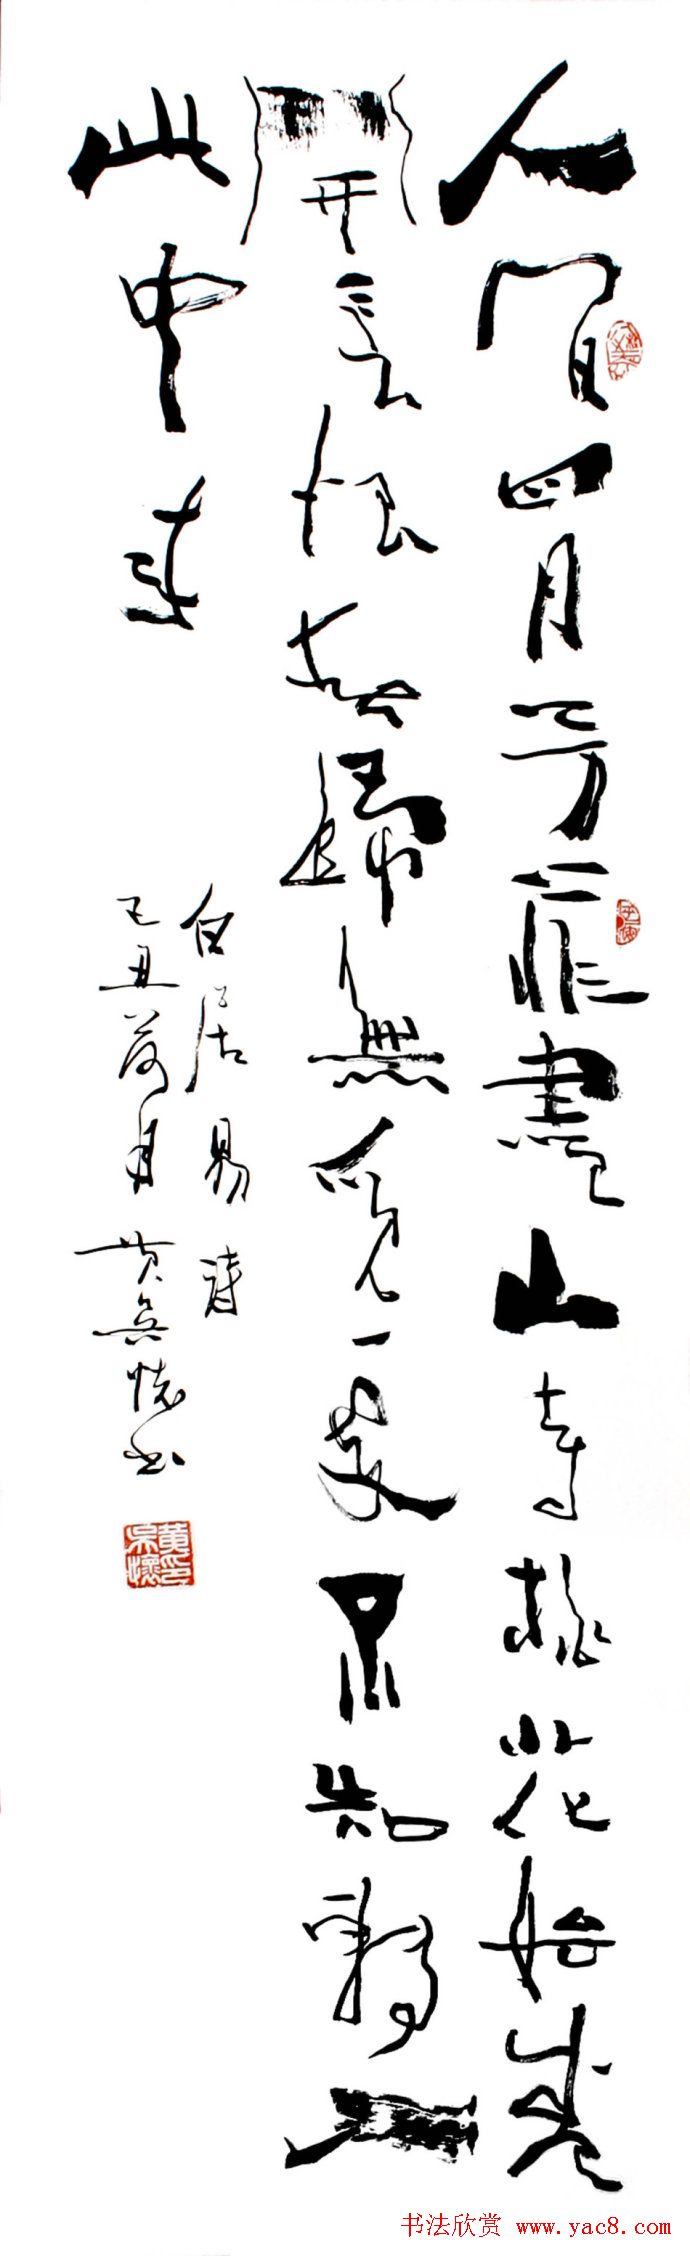 人間四月芳菲盡山寺桃花始盛
開長恨春歸無覓處不知轉入
此中来
白居易詩
己丑荷月黄吴懷书
黄印
吴懷
书法欣赏 www.yac8.com